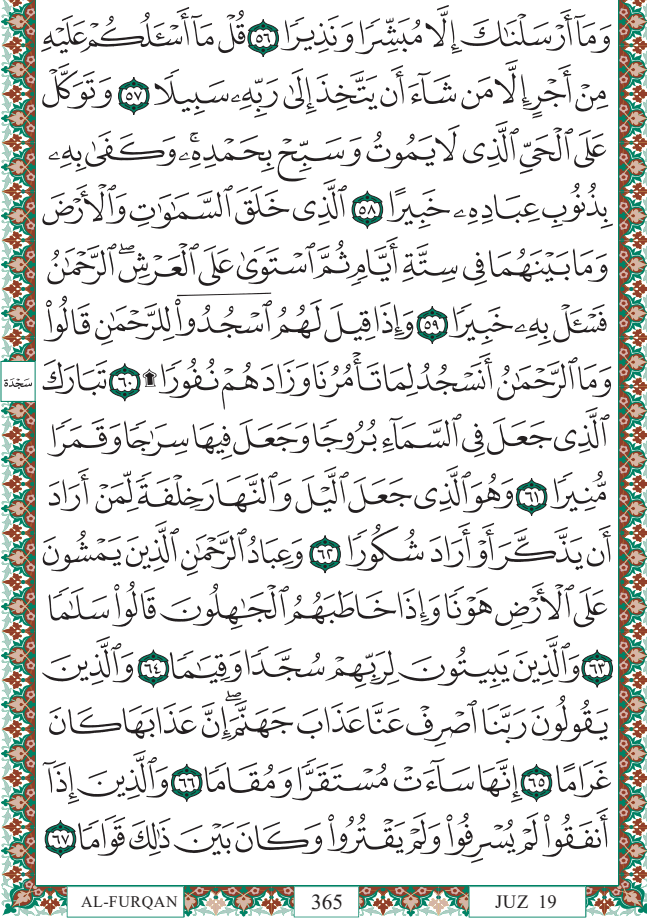 وَمَآ أَرْسَلْنَٰكَ إِلَّا مُبَشِّرًا وَنَذِيرًا ٥٦ قُلْ مَآ أَسْـَٔلُكُمْ عَلَيْهِ
مِنْ أَجْرٍ إِلَّا مَن شَآءَ أَن يَتَّخِذَ إِلَىٰ رَبِّهِۦ سَبِيلًا ٥٧ وَتَوَكَّلْ
عَلَى ٱلْحَىِّ ٱلَّذِى لَا يَمُوتُ وَسَبِّحْ بِحَمْدِهِۦۚ وَكَفَىٰ بِهِۦ
بِذُنُوبِ عِبَادِهِۦ خَبِيرًا ٥٨ ٱلَّذِى خَلَقَ ٱلسَّمَٰوَٰتِ وَٱلْأَرْضَ
وَمَا بَيْنَهُمَا فِى سِتَّةِ أَيَّامٍ ثُمَّ ٱسْتَوَىٰ عَلَى ٱلْعَرْشِۖ ٱلرَّحْمَٰنُ
فَسْـَٔلْ بِهِۦ خَبِيرًا ٥٩ وَإِذَا قِيلَ لَهُمُ ٱسْجُدُوا۟ لِلرَّحْمَٰنِ قَالُوا۟
وَمَا ٱلرَّحْمَٰنُ أَنَسْجُدُ لِمَا تَأْمُرُنَا وَزَادَهُمْ نُفُورًا ۩ ٦٠ تَبَارَكَ
سَجْدَة
ٱلَّذِى جَعَلَ فِى ٱلسَّمَآءِ بُرُوجًا وَجَعَلَ فِيهَا سِرَٰجًا وَقَمَرًا
مُّنِيرًا ٦١ وَهُوَ ٱلَّذِى جَعَلَ ٱلَّيْلَ وَٱلنَّهَارَ خِلْفَةً لِّمَنْ أَرَادَ
أَن يَذَّكَّرَ أَوْ أَرَادَ شُكُورًا ٦٢ وَعِبَادُ ٱلرَّحْمَٰنِ ٱلَّذِينَ يَمْشُونَ
عَلَى ٱلْأَرْضِ هَوْنًا وَإِذَا خَاطَبَهُمُ ٱلْجَٰهِلُونَ قَالُوا۟ سَلَٰمًا
٦٣ وَٱلَّذِينَ يَبِيتُونَ لِرَبِّهِمْ سُجَّدًا وَقِيَٰمًا ٦٤ وَٱلَّذِينَ
يَقُولُونَ رَبَّنَا ٱصْرِفْ عَنَّا عَذَابَ جَهَنَّمَۖ إِنَّ عَذَابَهَا كَانَ
غَرَامًا ٦٥ إِنَّهَا سَآءَتْ مُسْتَقَرًّا وَمُقَامًا ٦٦ وَٱلَّذِينَ إِذَآ
أَنفَقُوا۟ لَمْ يُسْرِفُوا۟ وَلَمْ يَقْتُرُوا۟ وَكَانَ بَيْنَ ذَٰلِكَ قَوَامًا ٦٧
AL-FURQAN 365 JUZ 19